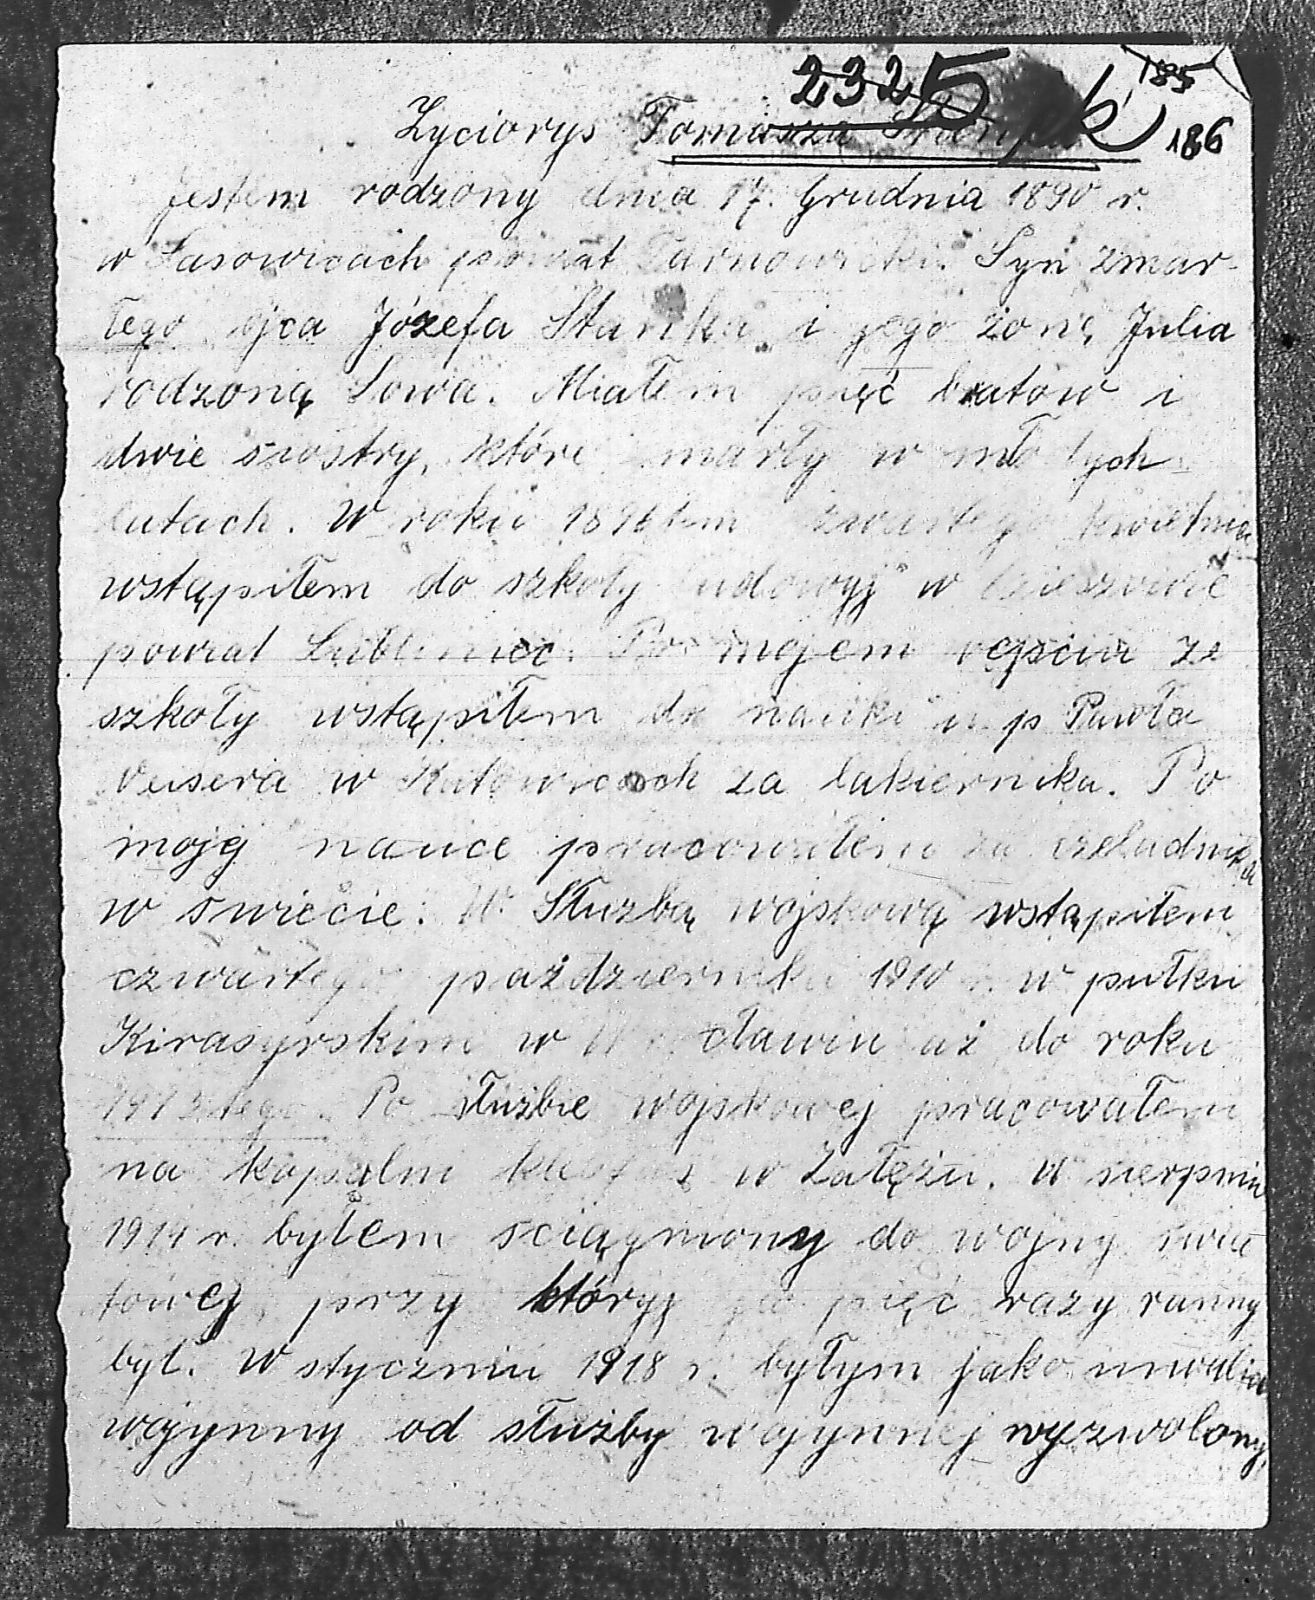 2325
185
186
Życiorys Tomasza
Jestem rodzony dnia 17. Grudnia 1890 r.
w Lasowicach powiat Tarnowicki. Syn zmar-
łego ojca Józefa Stanika i jego żonę Julia
rodzoną Sowa. Miałem pięć bratów i
dwie siostry, które marły w młodych
latach. W roku 1896tem czwartego kwietnia
wstąpiłem do szkoły ludowyj w
powiat Lubliniec. Po mojem wejściu ze
szkoły wstąpiłem do nauki u p Pawła
w Katowicach za lakiernika. Po
mojej nauce pracowałem za czeladnika
w świecie. W Służbą wojskową wstąpiłem
czwartego października 1910 r. w pułku
Kirasyrskim w Wrocławiu aż do roku
1913tego. Po służbie wojskowej pracowałem
na kopalni w Załężu. W sierpniu
1914 r. byłem sciągniony do wojny świa
towej, przy któryj pięć razy ranny
był. W styczniu 1918 r. byłym jako inwalida
wojynny od służby wojynnej wyzwolony,